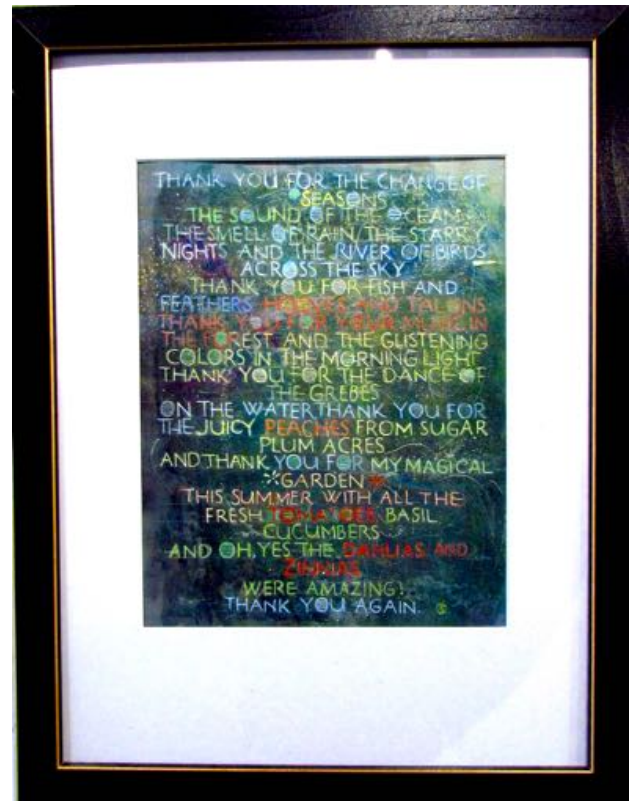 THANK YOU FOR THE CHANGE OF
SEASONS
THE SOUND OF THE OCEAN
THE SMELL OF RAIN, THE STARRY
NIGHTS AND THE RIVER OF BIRDS
ACROSS THE SKY
THANK YOU FOR FISH AND
FEATHERS HOOVES AND TALONS
THANK YOU FOR YOUR MUSIC IN
THE FOREST AND THE GLISTENING
COLORS IN THE MORNING LIGHT
THANK YOU FOR THE DANCE OF
THE GREBES
ON THE WATER THANK YOU FOR
THE JUICY PEACHES FROM SUGAR
PLUM ACRES
AND THANK YOU FOR MY MAGICAL
GARDEN
THIS SUMMER WITH ALL THE
FRESH TOMATOES BASIL
CUCUMBERS
AND OH, YES THE DAHLIAS AND
ZINNIAS
WERE AMAZING!
THANK YOU AGAIN.